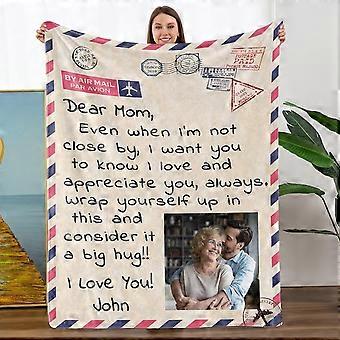 BY AIR MAIL
PAR AVION
Dear Mom,
Even when I'm not
close by, I want you
to know I love and
appreciate you, always.
wrap yourself up in
this and
consider it
a big hug!!
I Love You!
John